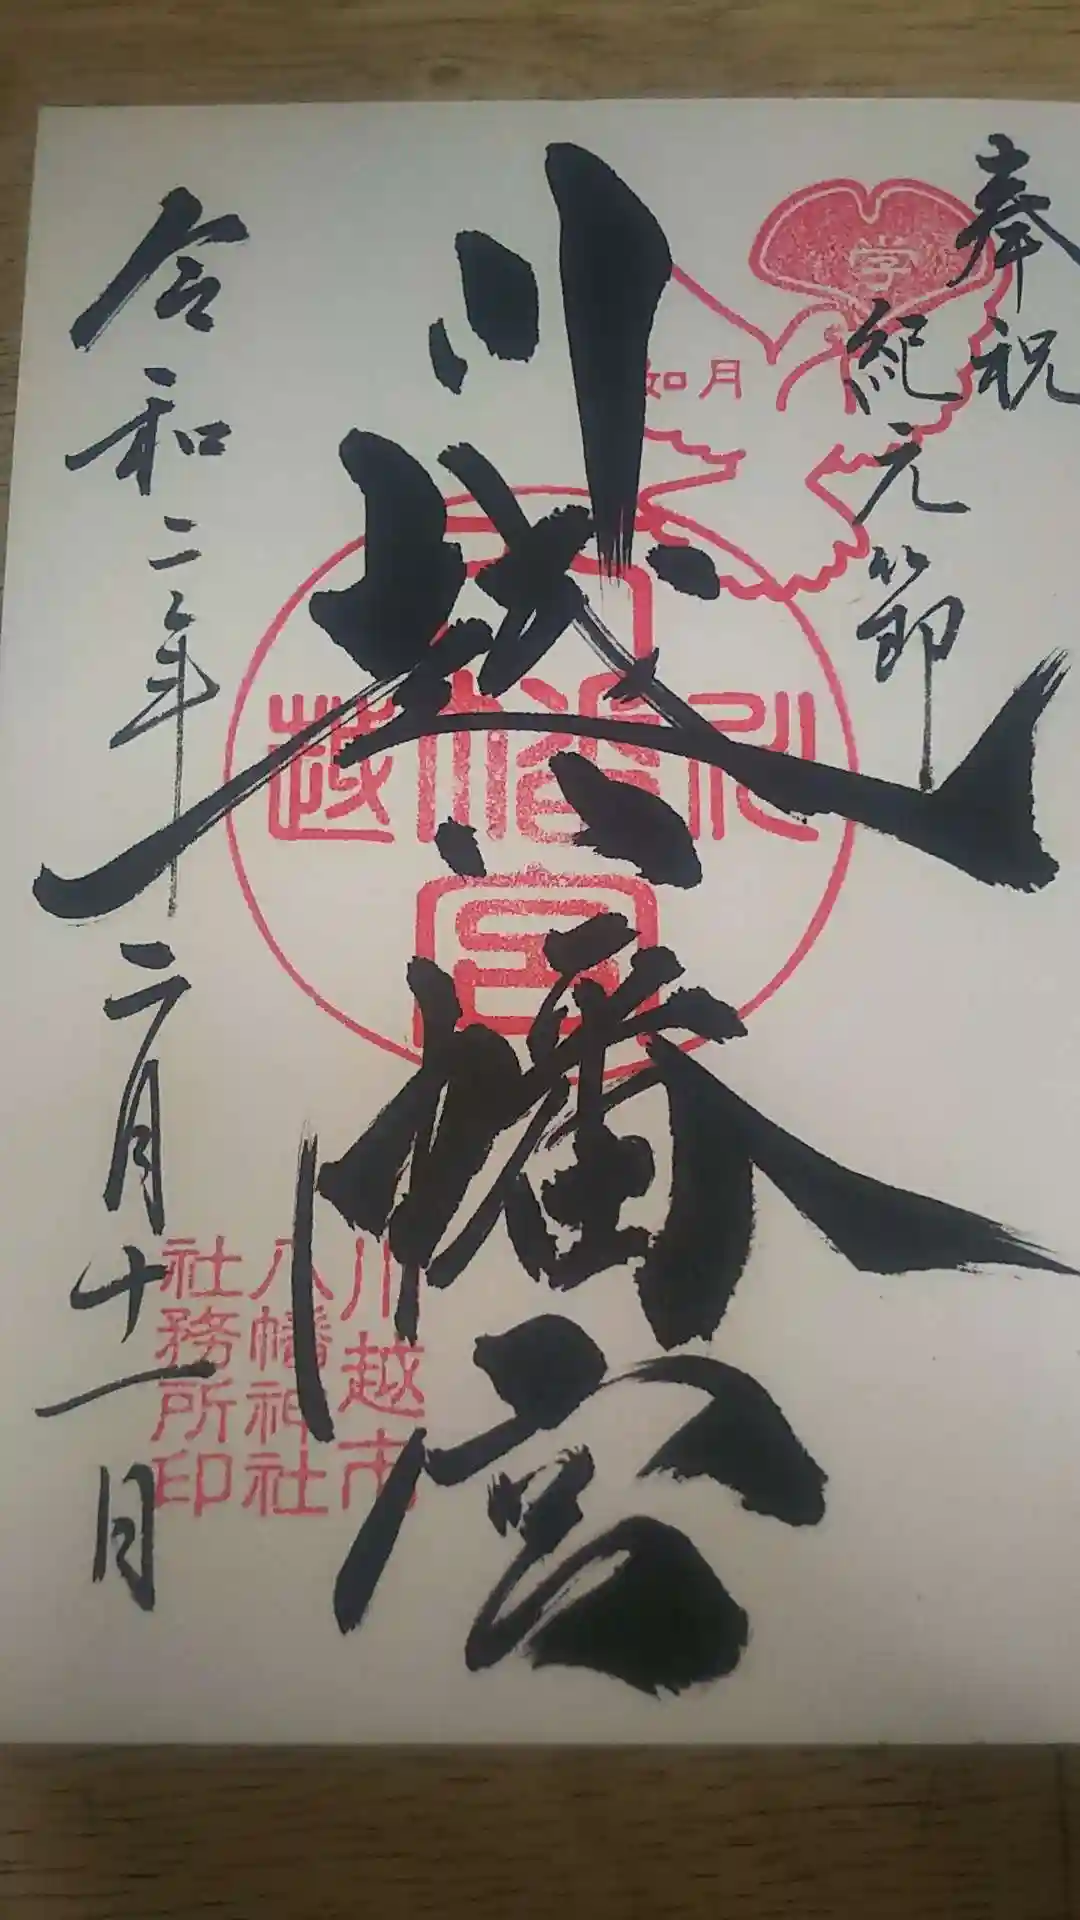 奉祝
紀元節
学
如月
川越八幡宮
川越
八幡宮
川越市
八幡神社
社務所印
令和二年二月十一日